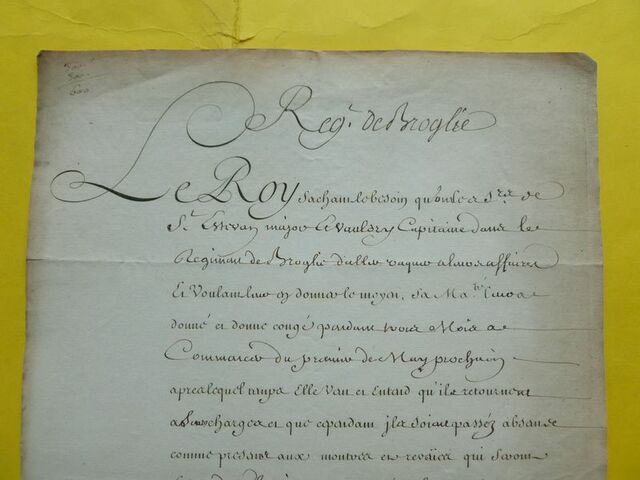 300
300
600
Reg.t de Broglie
Le Roy sachant le besoin qu'ont les S.rs de
S.t Estevan major et Vaulsry Capitaine dans le
Regiment de Broglie d'aller vaquer a leurs affaires
Et Voulant leur en donner le moyen, sa Ma.té leur a
donné et donne congé pendant trois Mois a
Commancer du premier de May prochain
apres lequel temps Elle veut et Entend qu'ils retournent
a leurs charges et que cependant ils soient passéz absens
comme presens aux montres et reveües qui seront